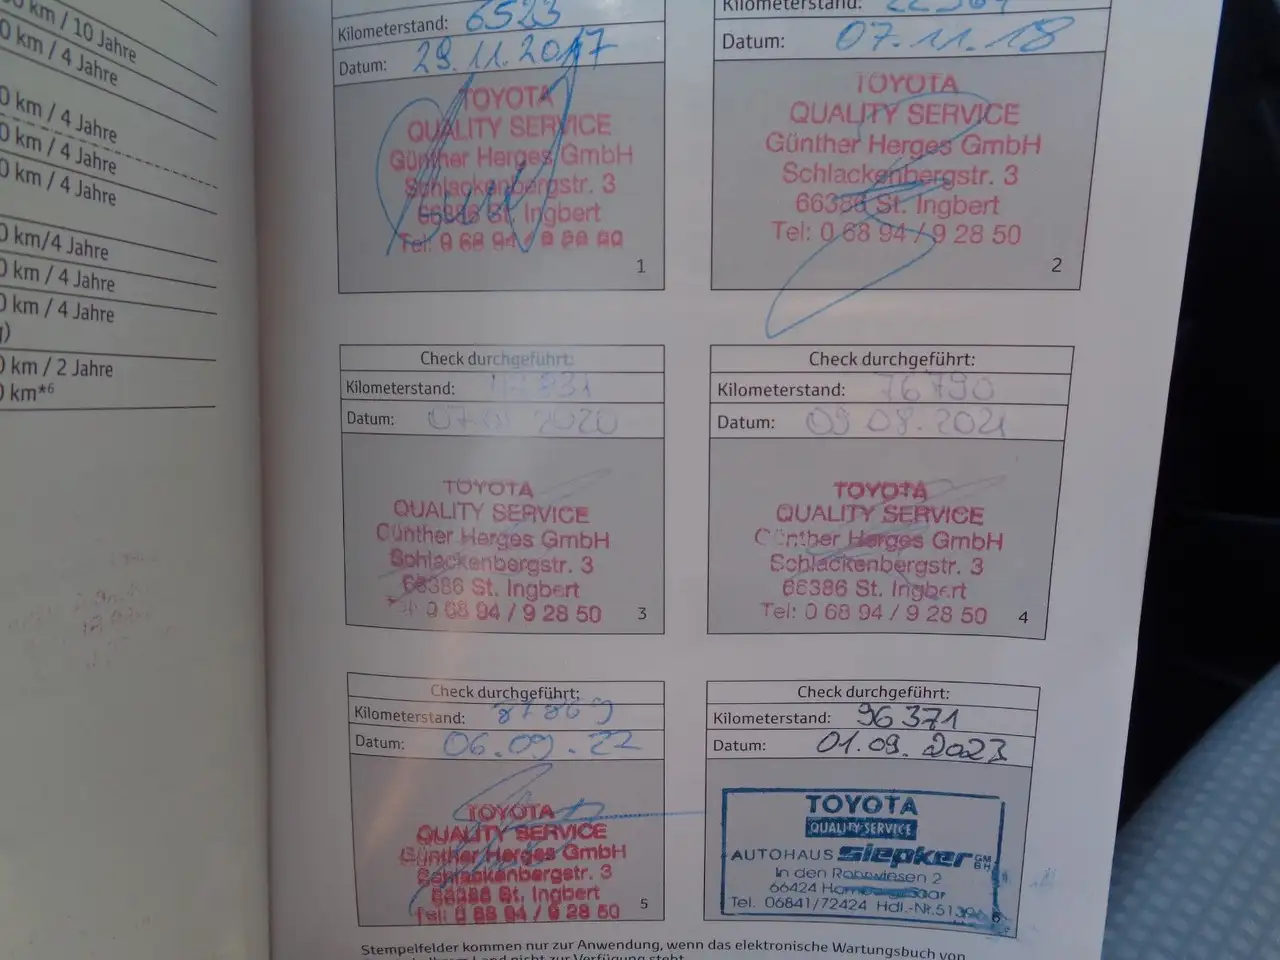 km / 10 Jahre
0 km / 4 Jahre
0 km / 4 Jahre
0 km / 4 Jahre
0 km / 4 Jahre
0 km/4 Jahre
0 km / 4 Jahre
0 km / 4 Jahre
)
0 km / 2 Jahre
0 km*6
Kilometerstand: 6523
Datum: 29.11.2017
TOYOTA
QUALITY SERVICE
Günther Herges GmbH
Schlackenbergstr. 3
66386 St. Ingbert
Tel: 0 68 94 /
1
Kilometerstand:
Datum: 07.11.18
TOYOTA
QUALITY SERVICE
Günther Herges GmbH
Schlackenbergstr. 3
66386 St. Ingbert
Tel: 0 68 94 / 9 28 50
2
Check durchgeführt:
Kilometerstand:
Datum: 2020
TOYOTA
QUALITY SERVICE
Günther Herges GmbH
Schlackenbergstr. 3
66386 St. Ingbert
0 68 94 / 9 28 50
3
Check durchgeführt:
Kilometerstand: 76790
Datum: 09.08.2021
TOYOTA
QUALITY SERVICE
Günther Herges GmbH
Schlackenbergstr. 3
66386 St. Ingbert
Tel: 0 68 94 / 9 28 50
4
Check durchgeführt:
Kilometerstand: 87869
Datum: 06.09.22
TOYOTA
QUALITY SERVICE
Günther Herges GmbH
Schlackenbergstr. 3
66386 St. Ingbert
Tel: 0 68 94 / 9 28 50
5
Check durchgeführt:
Kilometerstand: 96371
Datum: 01.09.2023
TOYOTA
QUALITY SERVICE
AUTOHAUS Siepker GMBH
In den Rohrwiesen 2
66424 Homburg-Saar
Tel. 06841/72424 Hdl.-Nr.
6
Stempelfelder kommen nur zur Anwendung, wenn das elektronische Wartungsbuch von
Land nicht zur Verfügung steht